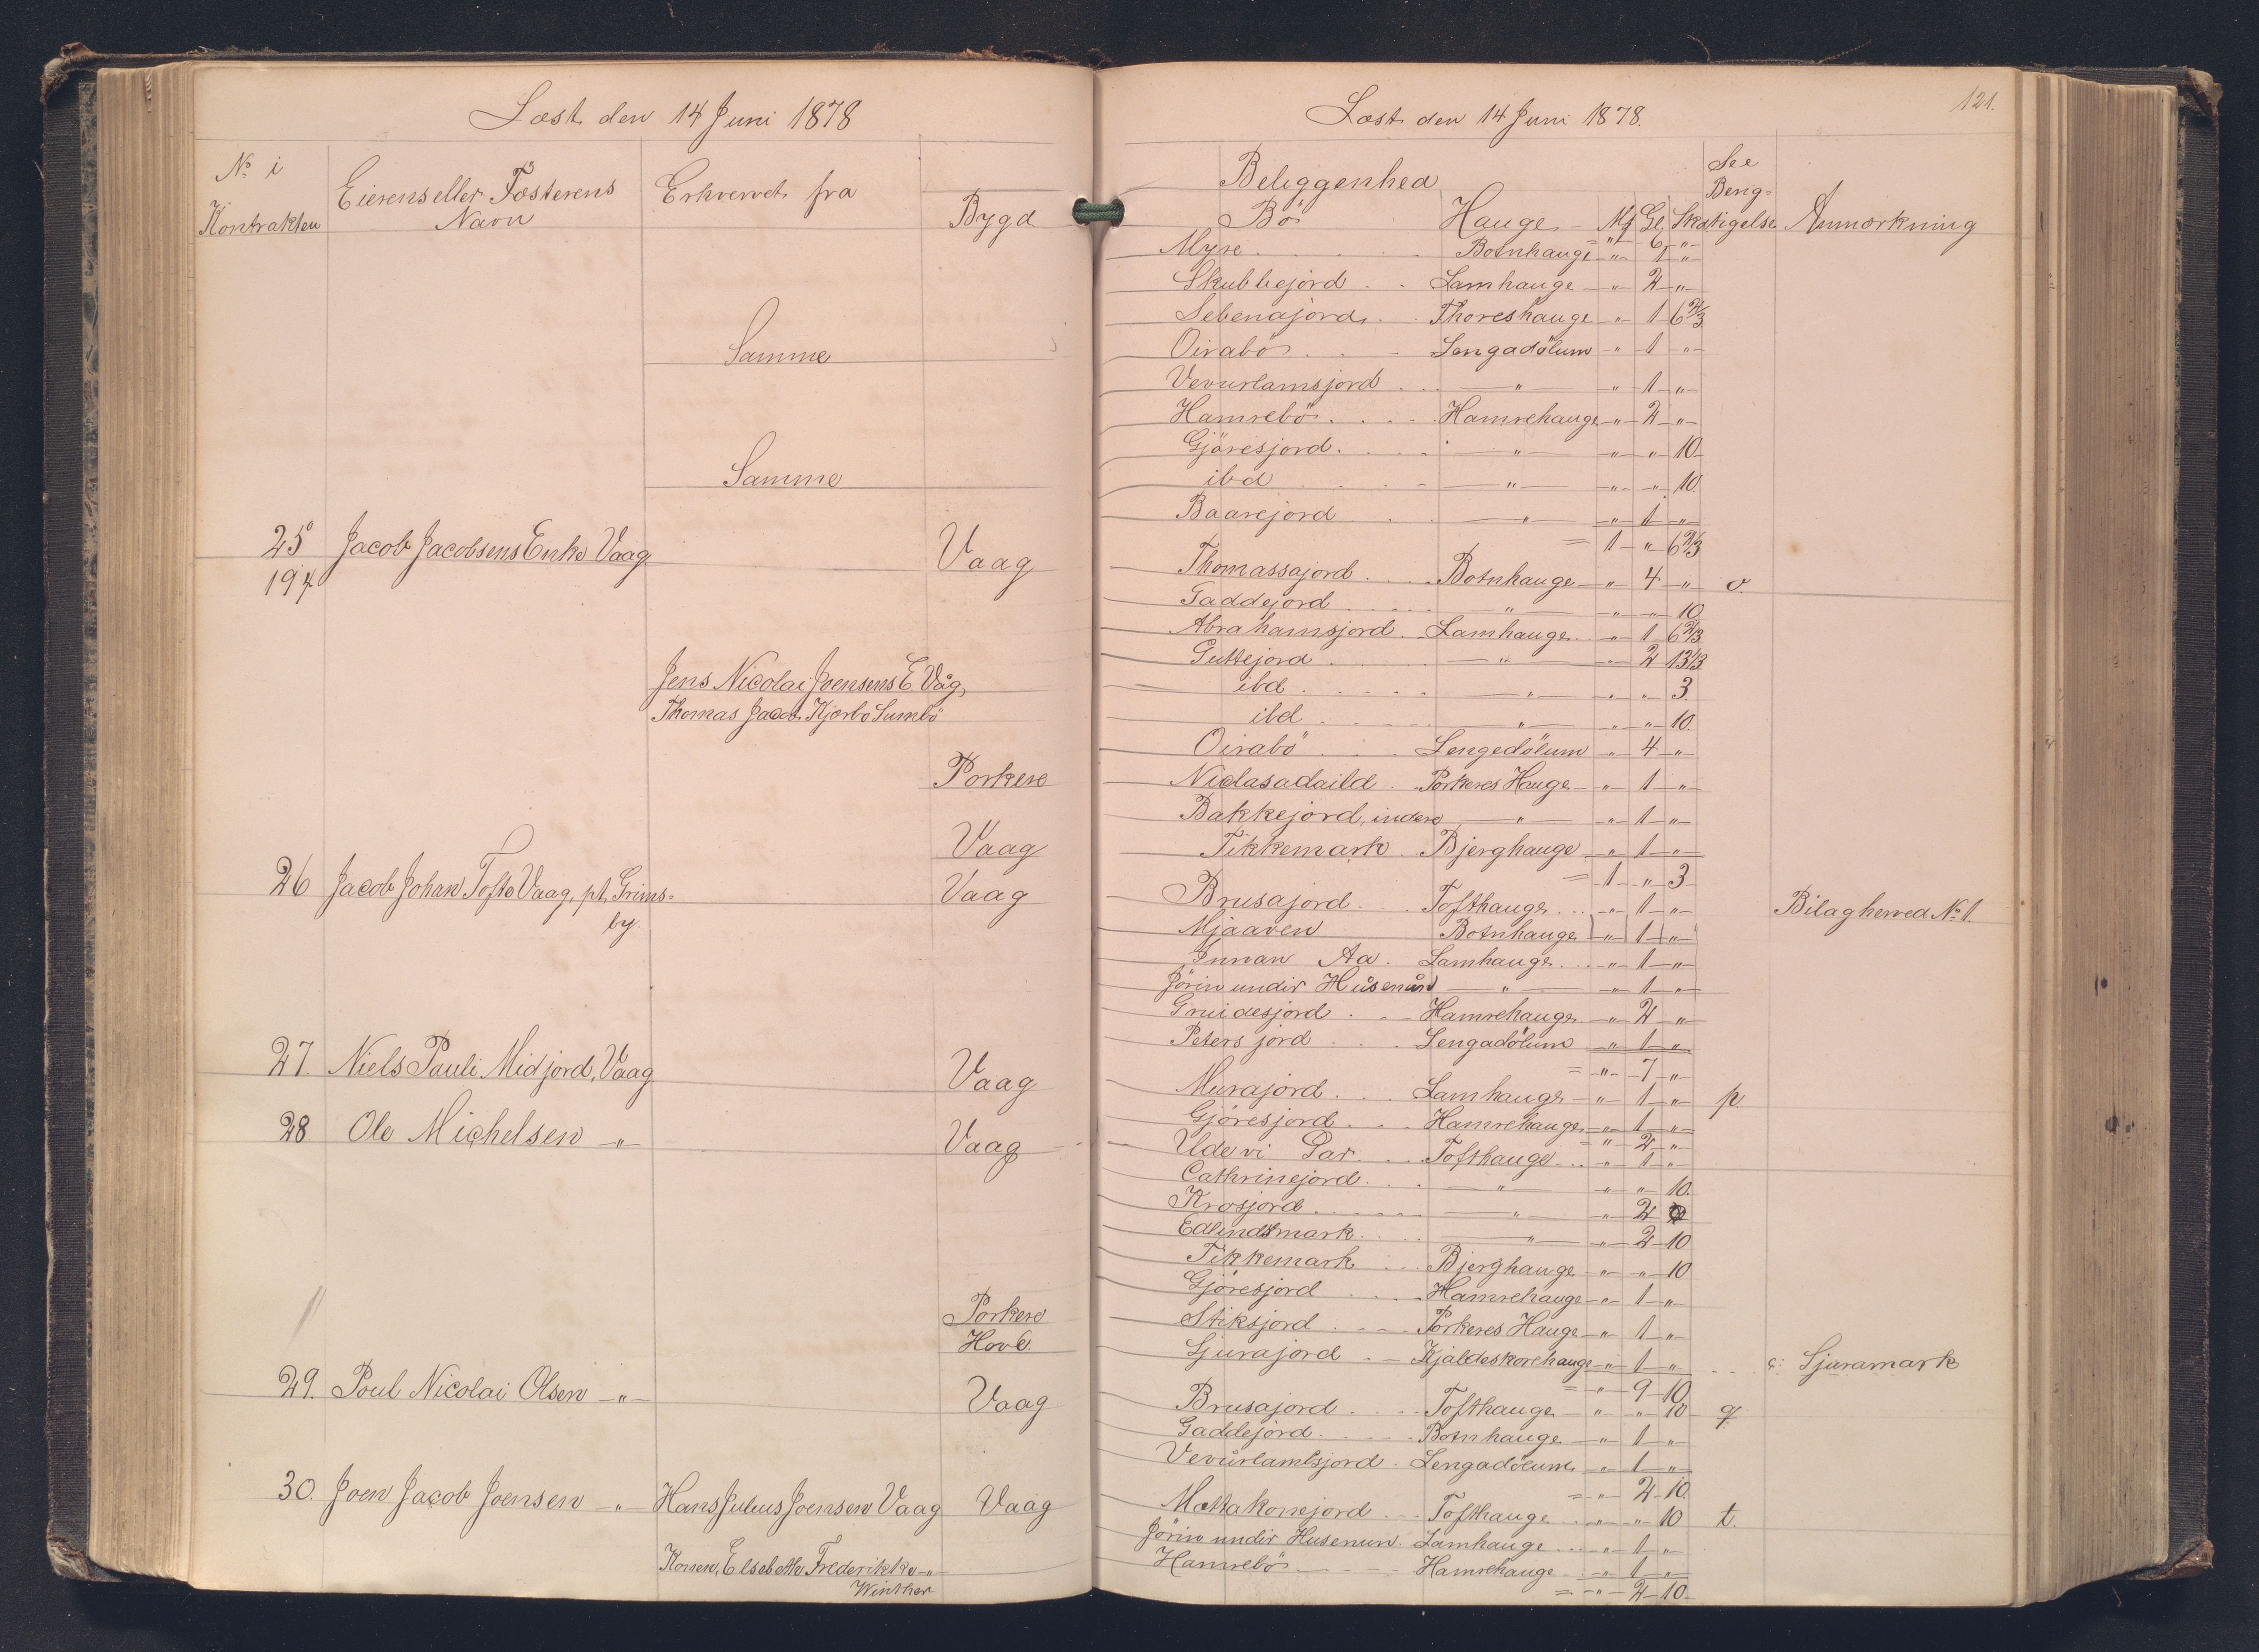 Læst den 14 Juni 1878
No i
Kontrakten
Eierens eller Fæsterens
Navn
Erhvervet fra
Bygd
Samme
Samme
25 Jacob Jacobsens Enke Vaag Vaag
194
Jens Nicolai Joensens E. Våg,
Thomas Jacob Kjærbo Sumbö
Porkere
Vaag
26 Jacob Johan Tofte Vaag, pt. Grims- Vaag
by.
27. Niels Pauli Midjord, Vaag Vaag
28. Ole Michelsen -"- Vaag
Porkere
Hove.
29. Poul Nicolai Olsen -"- Vaag
30. Joen Jacob Joensen -"- Hans Julius Joensen Vaag Vaag
Konen, Elsebethe Frederikke -"-
Winther
Læst den 14 Juni 1878.
121.
Beliggenhed
See
Berig-
Bö Hauge Mk Gl Sk tigelse Anmærkning
= " 6 "
Myre Botnhauge " 1 "
Skubbejord Lamhauge " 2 "
Sebenajord Thoreshauge " 1 6 2/3
Oirabö Lengadölum " 1 "
Vevurlamsjord " " 1 "
Hamrebö Hamrehauge " 2 "
Gjöresjord " " " 10
ibd " " " 10.
Baarejord " " 1 "
= 1 " 6 2/3
Thomassajord Botnhauge " 4 " o.
Gaddejord " " " 10
Abrahamsjord Lamhauge " 1 6 2/3
Guttejord " " 2 13 1/3
ibd " " " 3.
ibd " " " 10.
Oirabö Lengedölum " 4 "
Niclasadaild Porkeres Hauge " 1 "
Bakkejord, indere " " 1 "
Tikkemark Bjerghauge " 1 "
= 1 " 3
Brusajord Tofthauge " 1 " Bilag herved No 1.
Mjaaven Botnhauge " 1 "
Innan Aa. Lamhauge " 1 "
Jörin undir Húsenún " " 1 "
Gruidesjord Hamrehauge " 2 "
Peters jord Lengadölum " 1 "
= " 7 "
Murajord Lamhauge " 1 " p.
Gjöresjord Hamrehauge " 1 "
= " 2 "
Ude vi Gar Tofthauge " 1 "
Cathrinejord " " " 10.
Krosjord " " 2
Edlindsmark " " 2 10
Tikkemark Bjerghauge " " 10
Gjöresjord Hamrehauge " 1 "
Stiksjord Porkeres Hauge " 1 "
Sjurajord Kjaldeskorehauge " 1 " ɔ: Sjuramark
= " 9 10
Brusajord Tofthauge " " 10 q.
Gaddejord Botnhauge " 1 "
Vevúrlambsjord Lengadölum " 1 "
= " 2 10.
Mattakonejord Tofthauge " " 10 t.
Jörin undir Husenun Lamhauge " 1 "
Hamrebö Hamrehauge " 1 "
= " 2 10